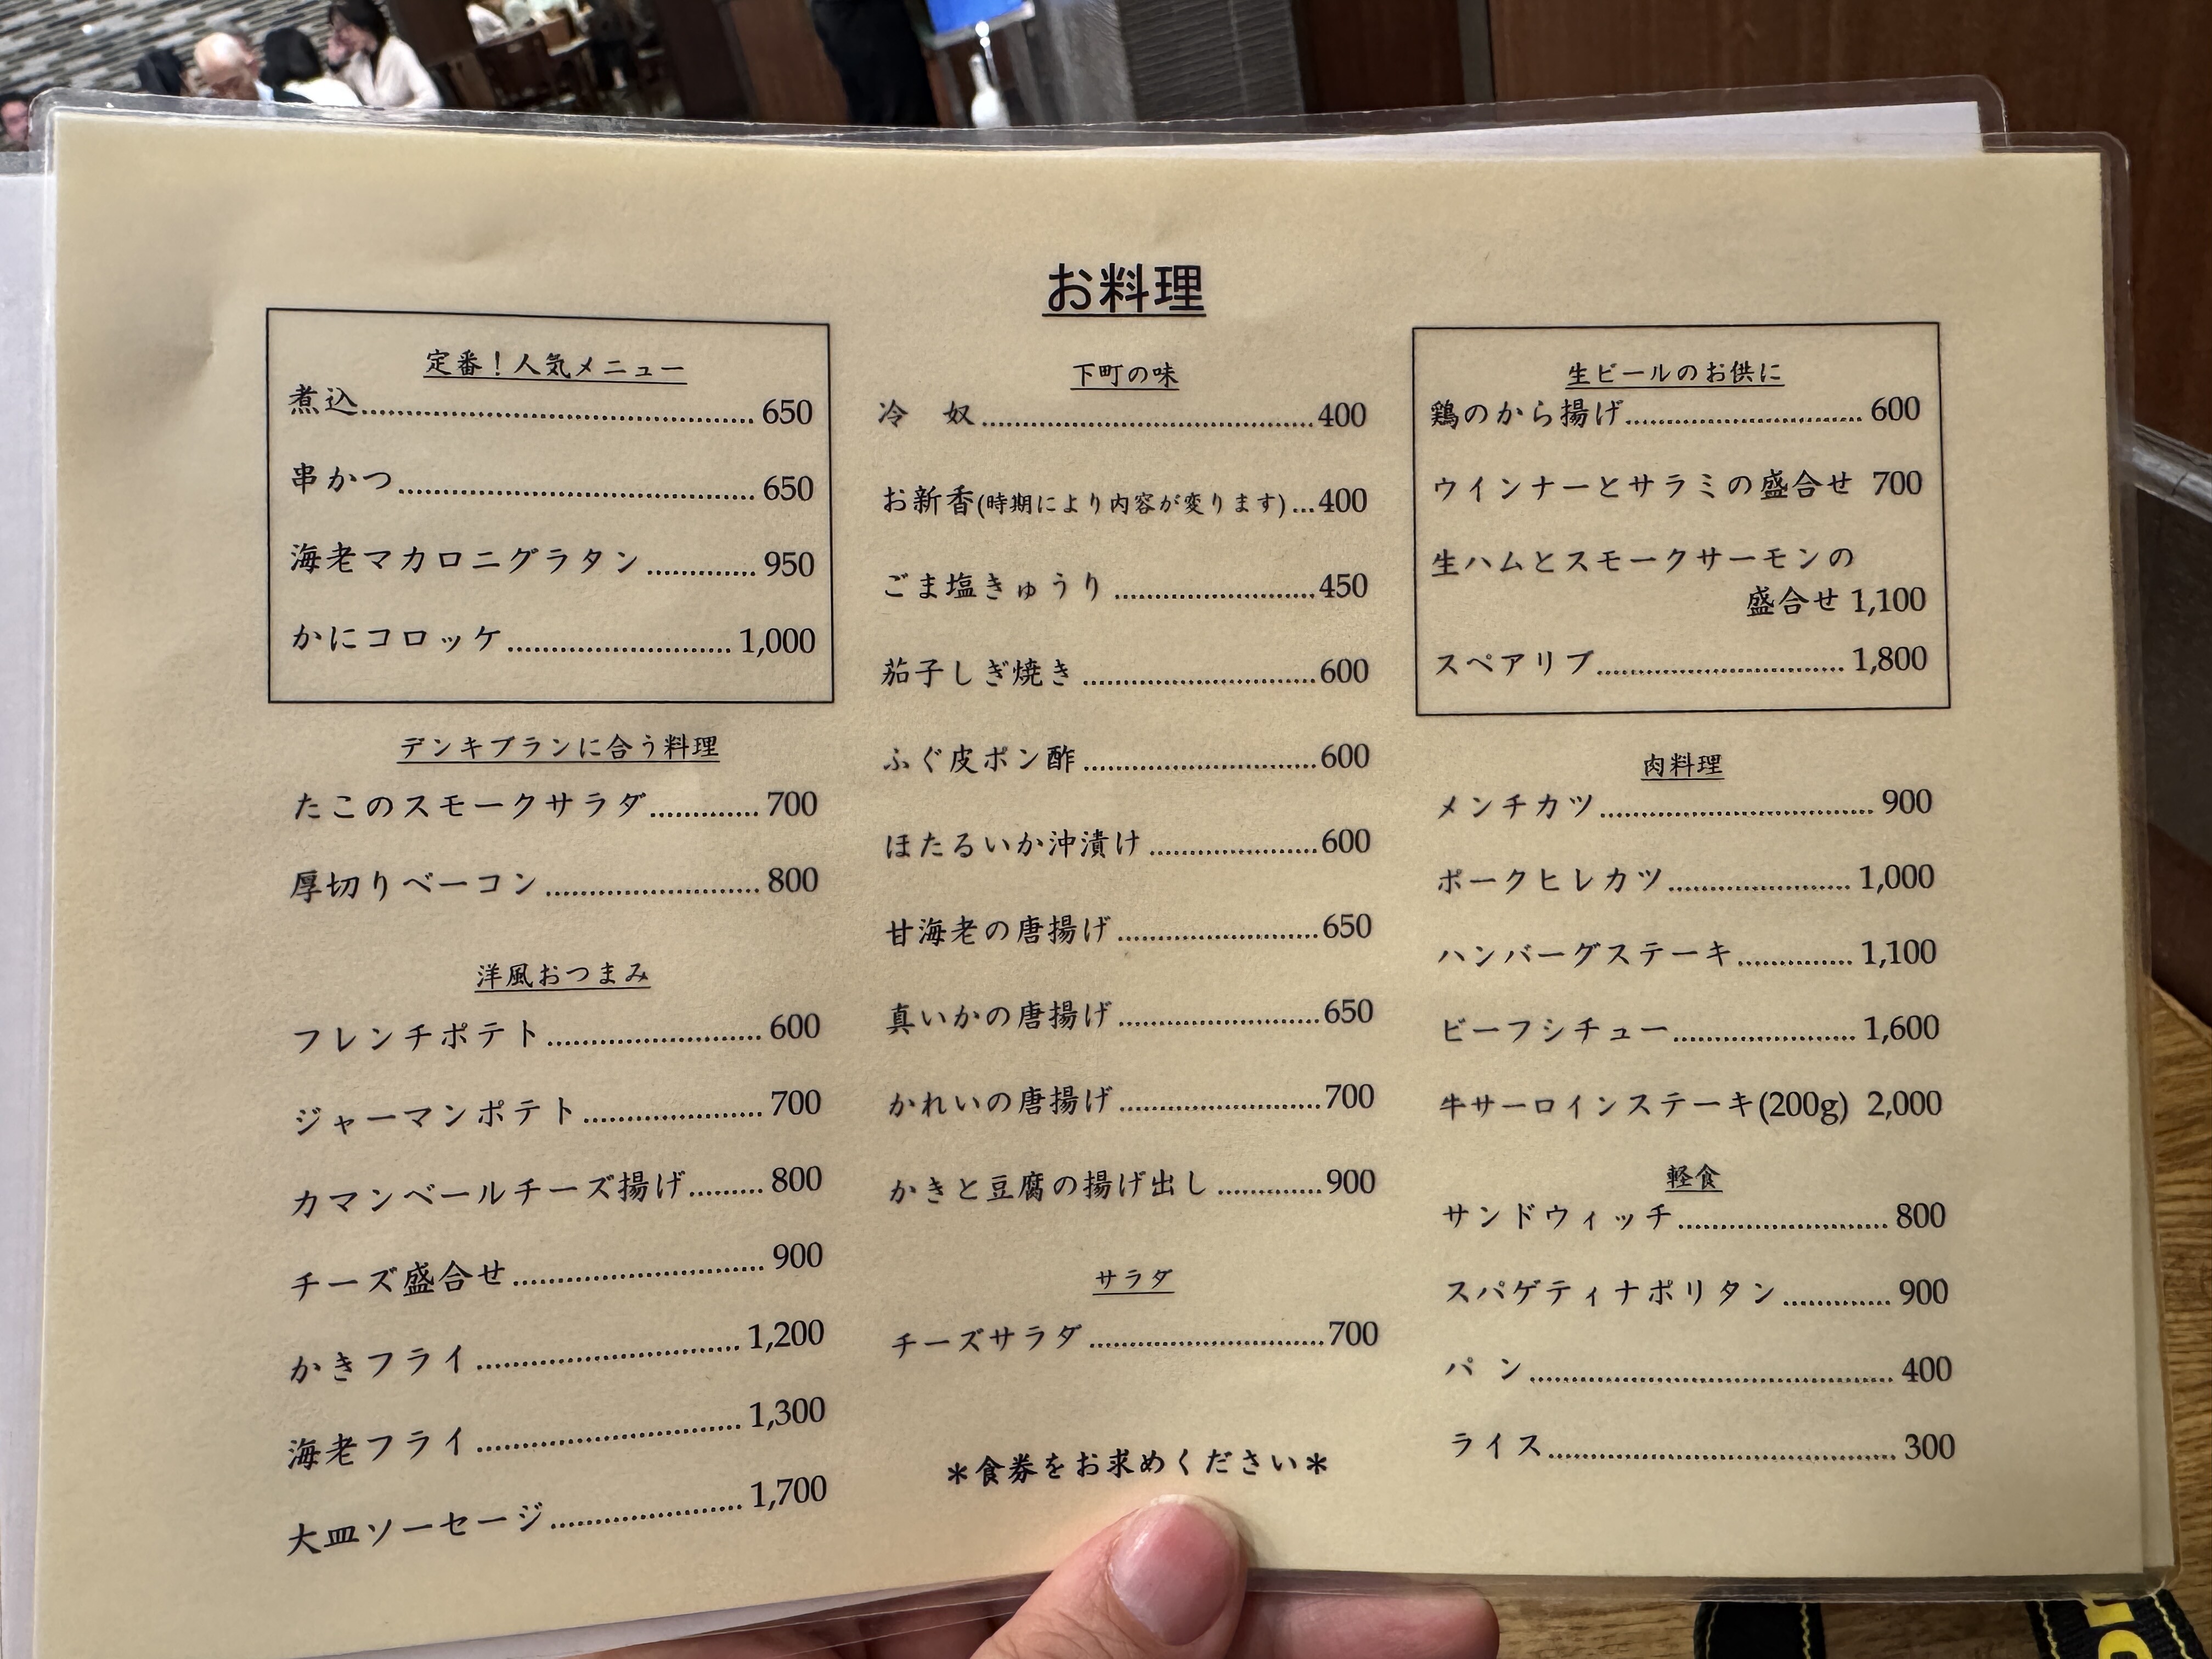 お料理
定番！人気メニュー
煮込 650
串かつ 650
海老マカロニグラタン 950
かにコロッケ 1,000
デンキブランに合う料理
たこのスモークサラダ 700
厚切りベーコン 800
洋風おつまみ
フレンチポテト 600
ジャーマンポテト 700
カマンベールチーズ揚げ 800
チーズ盛合せ 900
かきフライ 1,200
海老フライ 1,300
大皿ソーセージ 1,700
下町の味
冷　奴 400
お新香(時期により内容が変ります) 400
ごま塩きゅうり 450
茄子しぎ焼き 600
ふぐ皮ポン酢 600
ほたるいか沖漬け 600
甘海老の唐揚げ 650
真いかの唐揚げ 650
かれいの唐揚げ 700
かきと豆腐の揚げ出し 900
サラダ
チーズサラダ 700
＊食券をお求めください＊
生ビールのお供に
鶏のから揚げ 600
ウインナーとサラミの盛合せ 700
生ハムとスモークサーモンの
盛合せ 1,100
スペアリブ 1,800
肉料理
メンチカツ 900
ポークヒレカツ 1,000
ハンバーグステーキ 1,100
ビーフシチュー 1,600
牛サーロインステーキ(200g) 2,000
軽食
サンドウィッチ 800
スパゲティナポリタン 900
パン 400
ライス 300